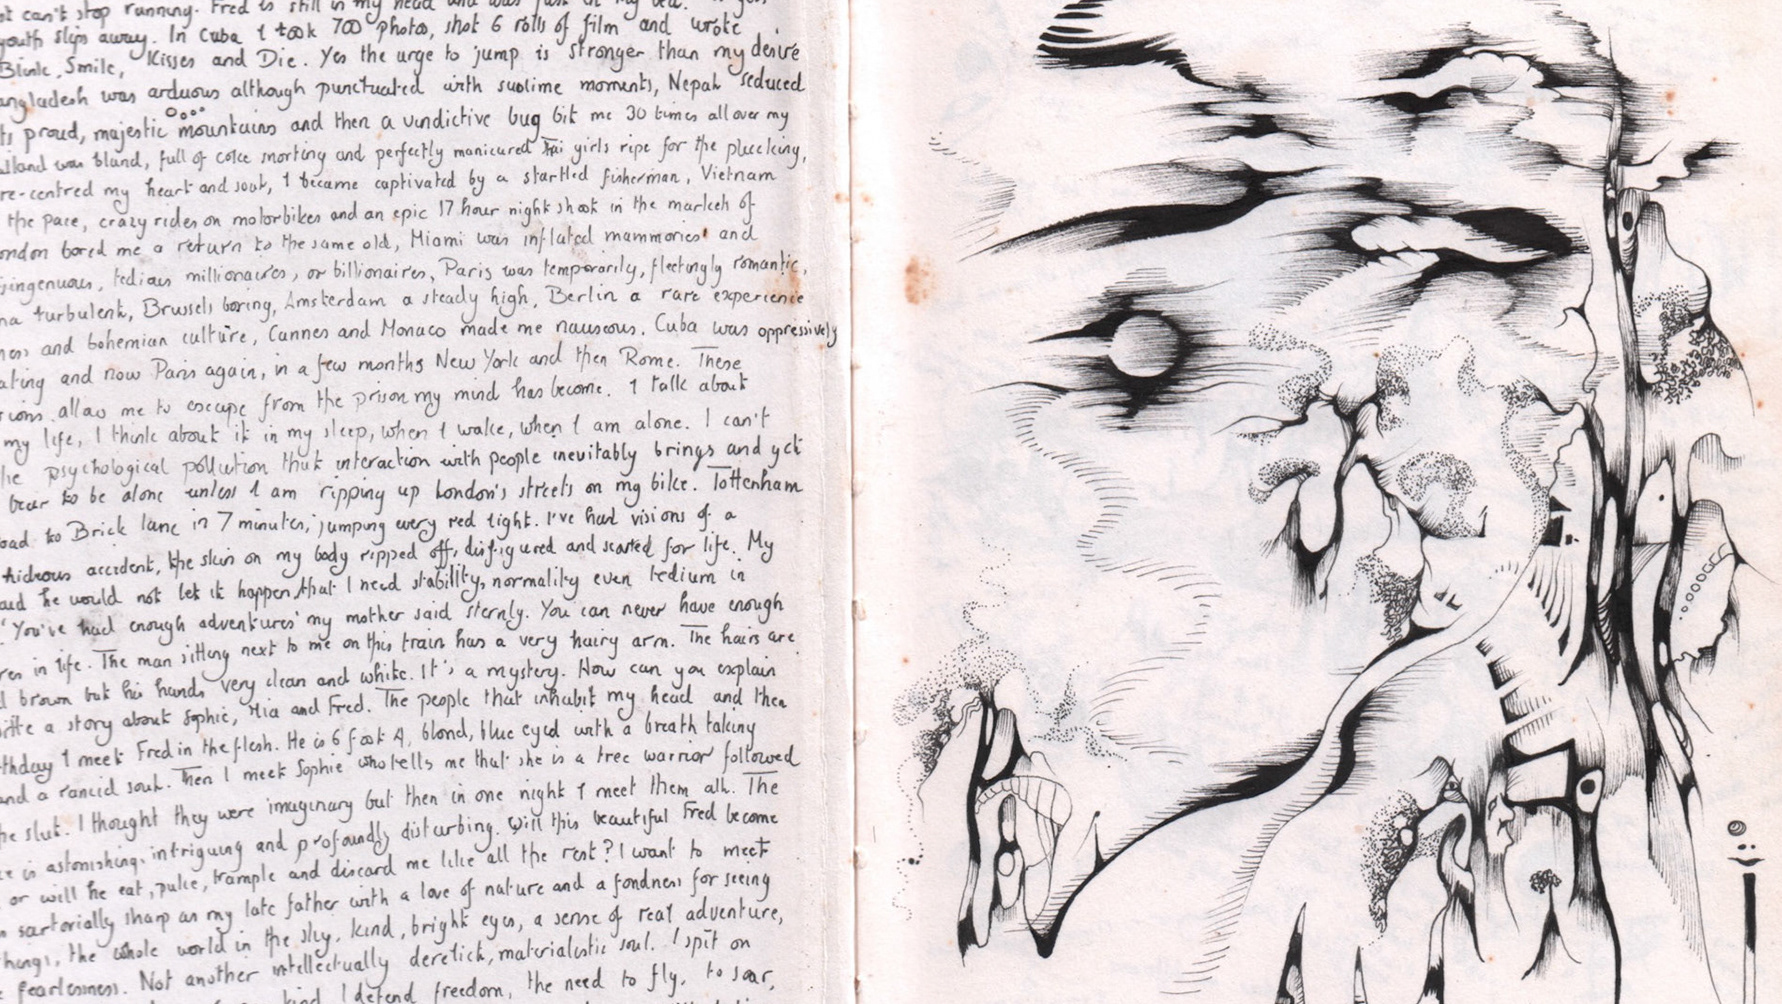 can't stop running. Fred is still in my head and was
youth slips away. In Cuba I took 700 photos, shot 6 rolls of film and wrote
Blink, Smile, Kisses and Die. Yes the urge to jump is stronger than my desire
angladesh was arduous although punctuated with sublime moments, Nepal seduced
ts proud, majestic mountains and then a vindictive bug bit me 30 times all over my
ailand was bland, full of coke snorting and perfectly manicured Tai girls ripe for the plucking,
re-centred my heart and soul, I became captivated by a startled fisherman, Vietnam
the pace, crazy rides on motorbikes and an epic 17 hour night shoot in the markets of
ondon bored me a return to the same old, Miami was inflated mammories and
singenuous, tedious millionaires, or billionaires, Paris was temporarily, fleetingly romantic,
na turbulent, Brussels boring, Amsterdam a steady high, Berlin a rare experience
ness and bohemian culture, Cannes and Monaco made me nauseous. Cuba was oppressively
ating and now Paris again, in a few months New York and then Rome. These
sions allow me to escape from the prison my mind has become. I talk about
my life, I think about it in my sleep, when I wake, when I am alone. I can't
he psychological pollution that interaction with people inevitably brings and yet
bear to be alone unless I am ripping up London's streets on my bike. Tottenham
oad to Brick lane in 7 minutes, jumping every red light. I've had visions of a
hideous accident, the skin on my body ripped off, disfigured and scarred for life. My
aid he would not let it happen, that I need stability, normality even tedium in
'You've had enough adventures' my mother said sternly. You can never have enough
res in life. The man sitting next to me on this train has a very hairy arm. The hairs are
d brown but his hands very clean and white. It's a mystery. How can you explain
itte a story about Sophie, Mia and Fred. The people that inhabit my head and then
thday I meet Fred in the flesh. He is 6 foot 4, blond, blue eyed with a breath taking
and a rancid soul. Then I meet Sophie who tells me that she is a tree warrior followed
he slut. I thought they were imaginary but then in one night I meet them all. The
ce is astonishing, intriguing and profoundly disturbing. Will this beautiful Fred become
or will he eat, puke, trample and discard me like all the rest? I want to meet
sartorially sharp as my late father with a love of nature and a fondness for seeing
things, the whole world in the sky. kind, bright eyes, a sense of real adventure,
fearlessness. Not another intellectually derelict, materialistic soul. I spit on
kind. I defend freedom, the need to fly, to soar,